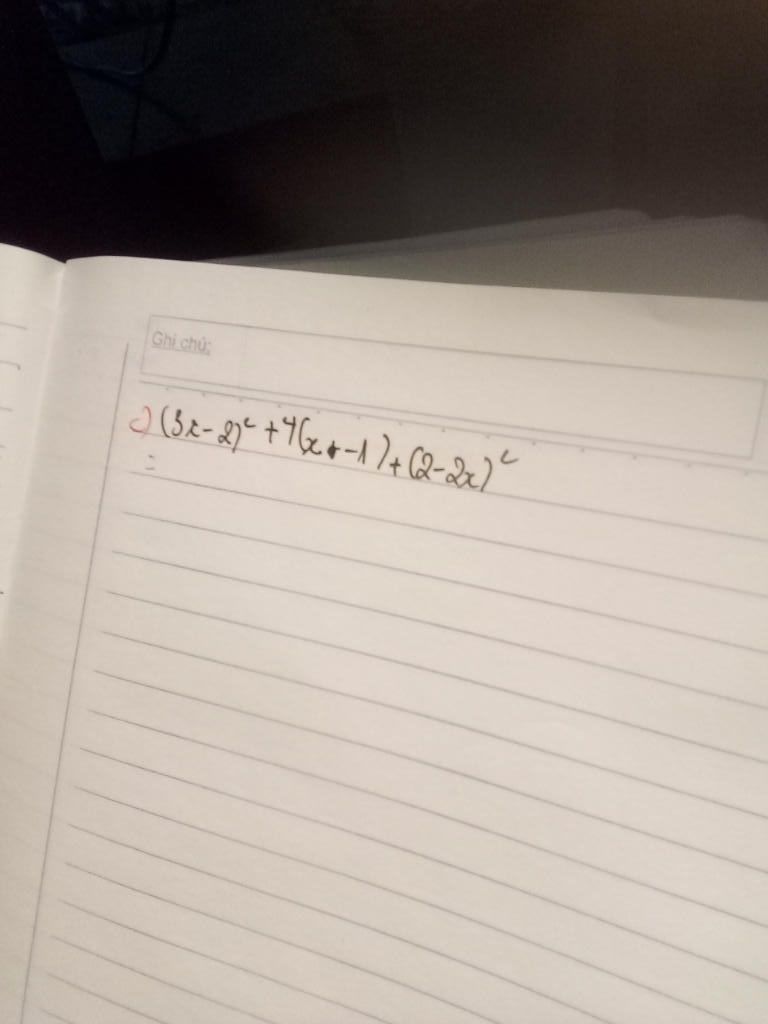 Ghi chú:
c) (3x-2)² + 4(x-1) + (2-2x)²
=